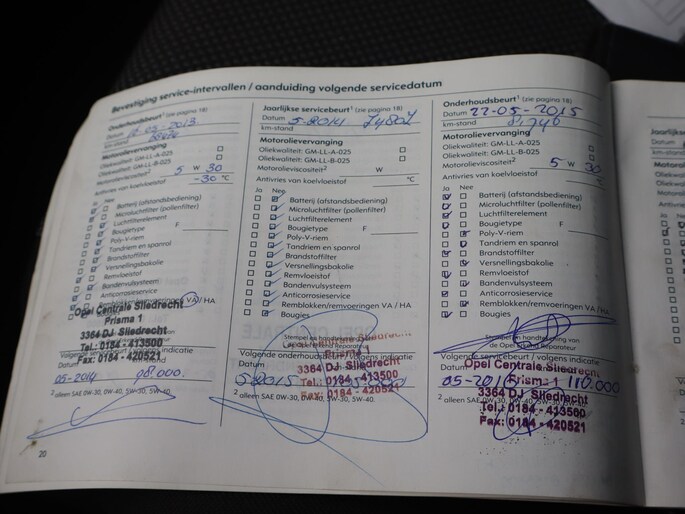 Bevestiging service-intervallen / aanduiding volgende servicedatum
Onderhoudsbeurt¹ (zie pagina 18)
Datum -2013
km-stand
Motorolievervanging
Oliekwaliteit: GM-LL-A-025
Oliekwaliteit: GM-LL-B-025
Motorolieviscositeit² 5 W 30
Antivries van koelvloeistof -30 °C
Ja Nee
Batterij (afstandsbediening)
Microluchtfilter (pollenfilter)
Luchtfilterelement
Bougietype F
Poly-V-riem
Tandriem en spanrol
Brandstoffilter
Versnellingsbakolie
Remvloeistof
Bandenvulsysteem
Anticorrosieservice
VA / HA
Opel Centrale Sliedrecht
Prisma 1
3364 DJ Sliedrecht
Tel.: 0184 - 413500
Fax: 0184 - 420521
Datum
05-2014 98.000
² alleen SAE 0W-30, 0W-40, 5W-30, 5W-40.
20
Jaarlijkse servicebeurt¹ (zie pagina 18)
Datum 5-2014
km-stand
Motorolievervanging
Oliekwaliteit: GM-LL-A-025
Oliekwaliteit: GM-LL-B-025
Motorolieviscositeit² W
Antivries van koelvloeistof °C
Ja Nee
Batterij (afstandsbediening)
Microluchtfilter (pollenfilter)
Luchtfilterelement
Bougietype F
Poly-V-riem
Tandriem en spanrol
Brandstoffilter
Versnellingsbakolie
Remvloeistof
Bandenvulsysteem
Anticorrosieservice
Remblokken/remvoeringen VA / HA
Bougies
Prisma 1
3364 DJ Sliedrecht
Tel.: 0184 - 413500
Fax: 0184 - 420521
Volgende onderhoudsbeurt / volgens indicatie
Datum
5-2015
² alleen SAE 0W-30, 0W-40, 5W-30, 5W-40.
Onderhoudsbeurt¹ (zie pagina 18)
Datum 22-05-2015
km-stand
Motorolievervanging
Oliekwaliteit: GM-LL-A-025
Oliekwaliteit: GM-LL-B-025
Motorolieviscositeit² 5 W 30
Antivries van koelvloeistof °C
Ja Nee
Batterij (afstandsbediening)
Microluchtfilter (pollenfilter)
Luchtfilterelement
Bougietype F
Poly-V-riem
Tandriem en spanrol
Brandstoffilter
Versnellingsbakolie
Remvloeistof
Bandenvulsysteem
Anticorrosieservice
Remblokken/remvoeringen VA / HA
Bougies
Stempel en handtekening van
de Opel Erkend Reparateur
Volgende servicebeurt / volgens indicatie
Opel Centrale Sliedrecht
Datum
Prisma 1
05-2016 110.000
3364 DJ Sliedrecht
Tel.: 0184 - 413500
Fax: 0184 - 420521
² alleen SAE 0W-30, 0W-40,